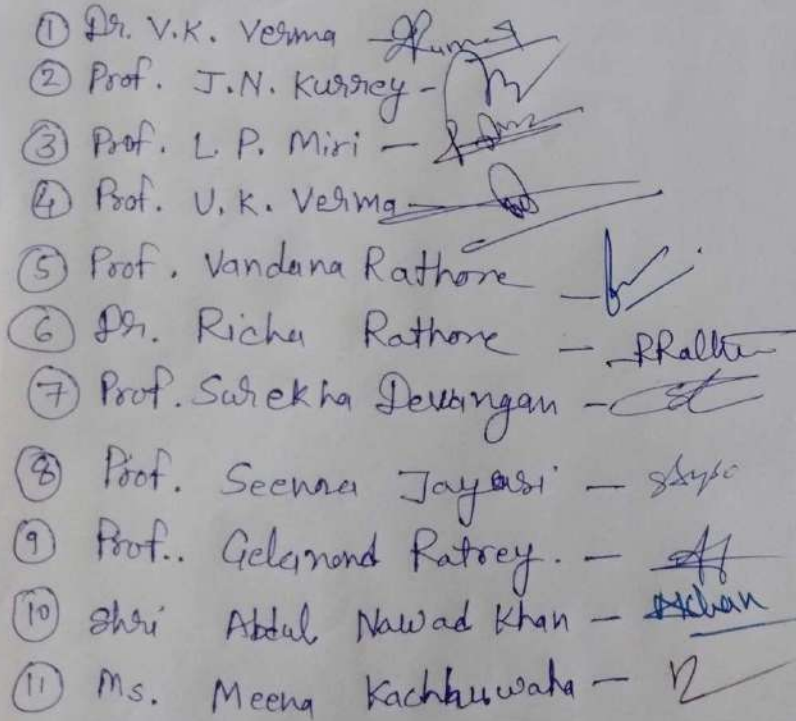 ① Dr. V.K. Verma -
② Prof. J.N. Kurrey -
③ Prof. L. P. Miri -
④ Prof. U. K. Verma -
⑤ Prof. Vandana Rathore -
⑥ Dr. Richa Rathore -
⑦ Prof. Surekha Dewangan -
⑧ Prof. Seema Jayasi -
⑨ Prof.. Ratrey. -
⑩ Shri Abdul Nawad Khan - AKhan
⑪ Ms. Meena Kachhuwaha -